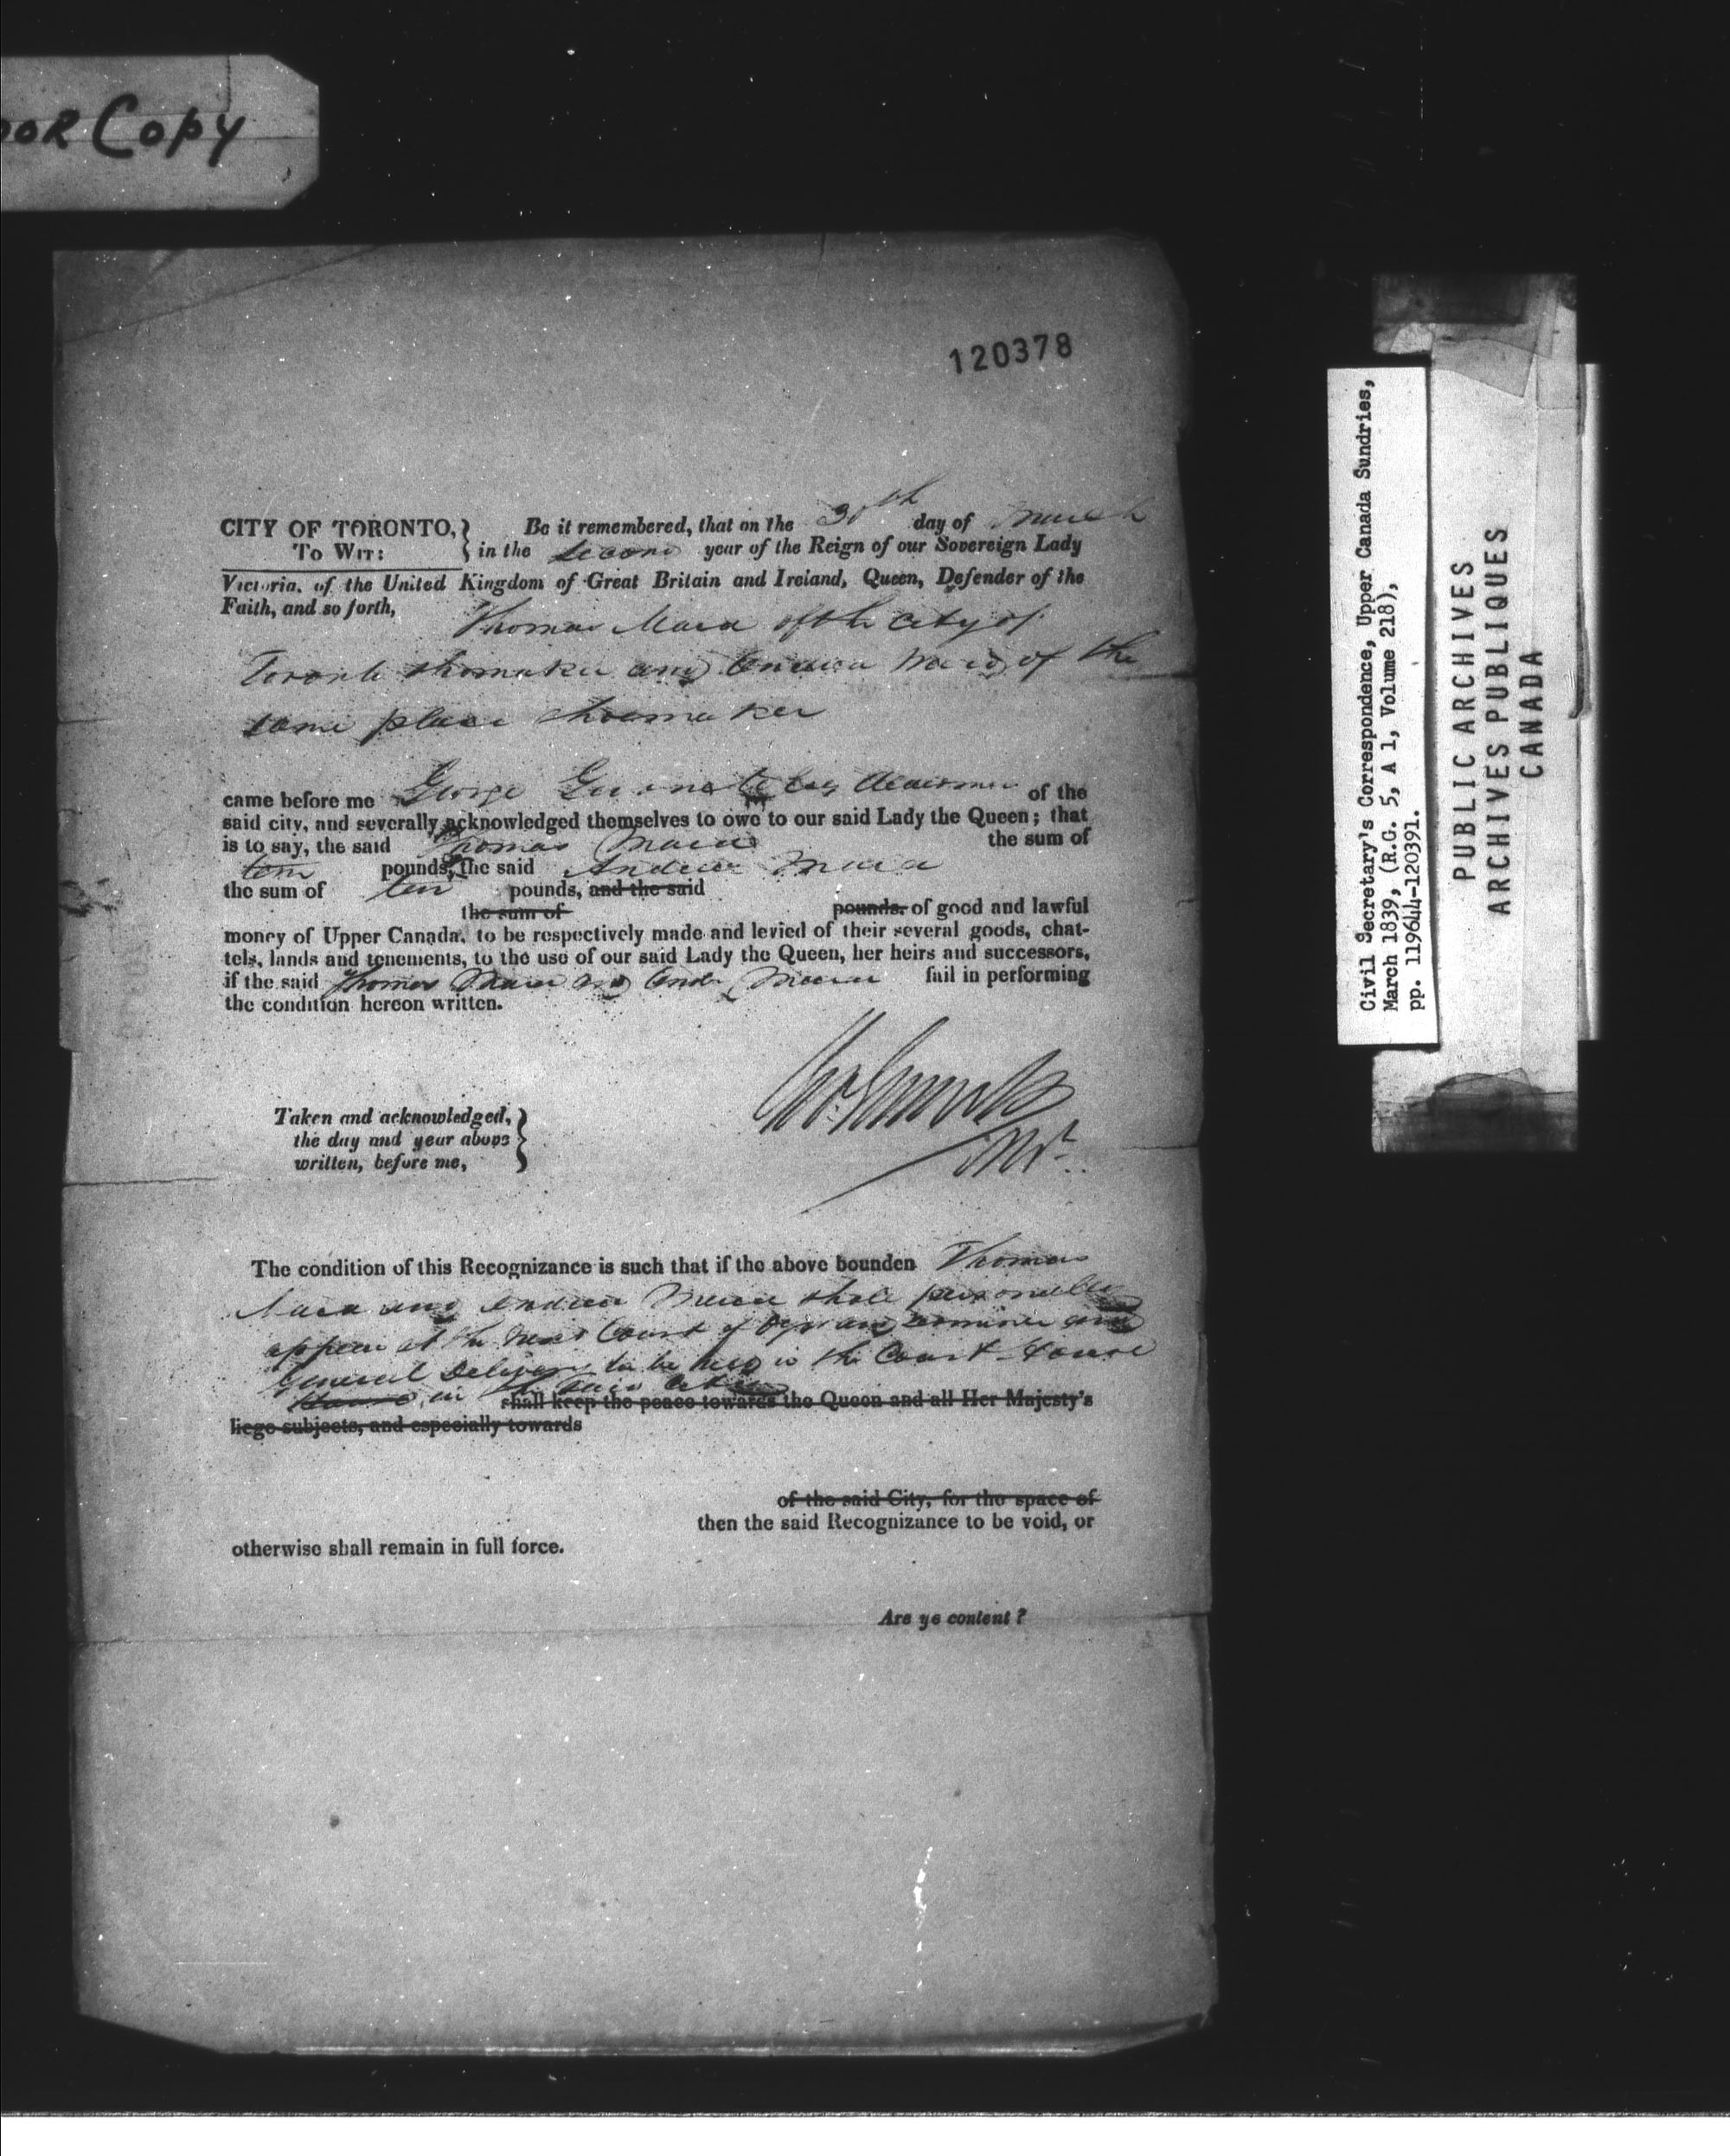 OOR Copy
120378
CITY OF TORONTO, } Be it remembered, that on the 30th day of March
To Wit: } in the second year of the Reign of our Sovereign Lady
Victoria, of the United Kingdom of Great Britain and Ireland, Queen, Defender of the
Faith, and so forth, Thomas Mara of the City of
Toronto shomaker and Andrew Mara of the
same place shoemaker
came before me George Alderman of the
said city, and severally acknowledged themselves to owe to our said Lady the Queen; that
is to say, the said Thomas Mara the sum of
ten pounds, the said Andrew Mara
the sum of ten pounds, and the said
the sum of pounds. of good and lawful
money of Upper Canada, to be respectively made and levied of their several goods, chat-
tels, lands and tenements, to the use of our said Lady the Queen, her heirs and successors,
if the said Thomas Mara and Andw Mara fail in performing
the condition hereon written.
Taken and acknowledged,
the day and year above
written, before me, }
The condition of this Recognizance is such that if the above bounden Thomas
Mara and Andrew Mara shall personally
appear at the next Court of Oyer and Terminer and
General Delivery to be held in the Court House
in the said City
shall keep the peace towards the Queen and all Her Majesty's
liege subjects, and especially towards
of the said City, for the space of
then the said Recognizance to be void, or
otherwise shall remain in full force.
Are ye content?
Civil Secretary's Correspondence, Upper Canada Sundries,
March 1839, (R.G. 5, A 1, Volume 218),
pp. 119644-120391.
PUBLIC ARCHIVES
ARCHIVES PUBLIQUES
CANADA